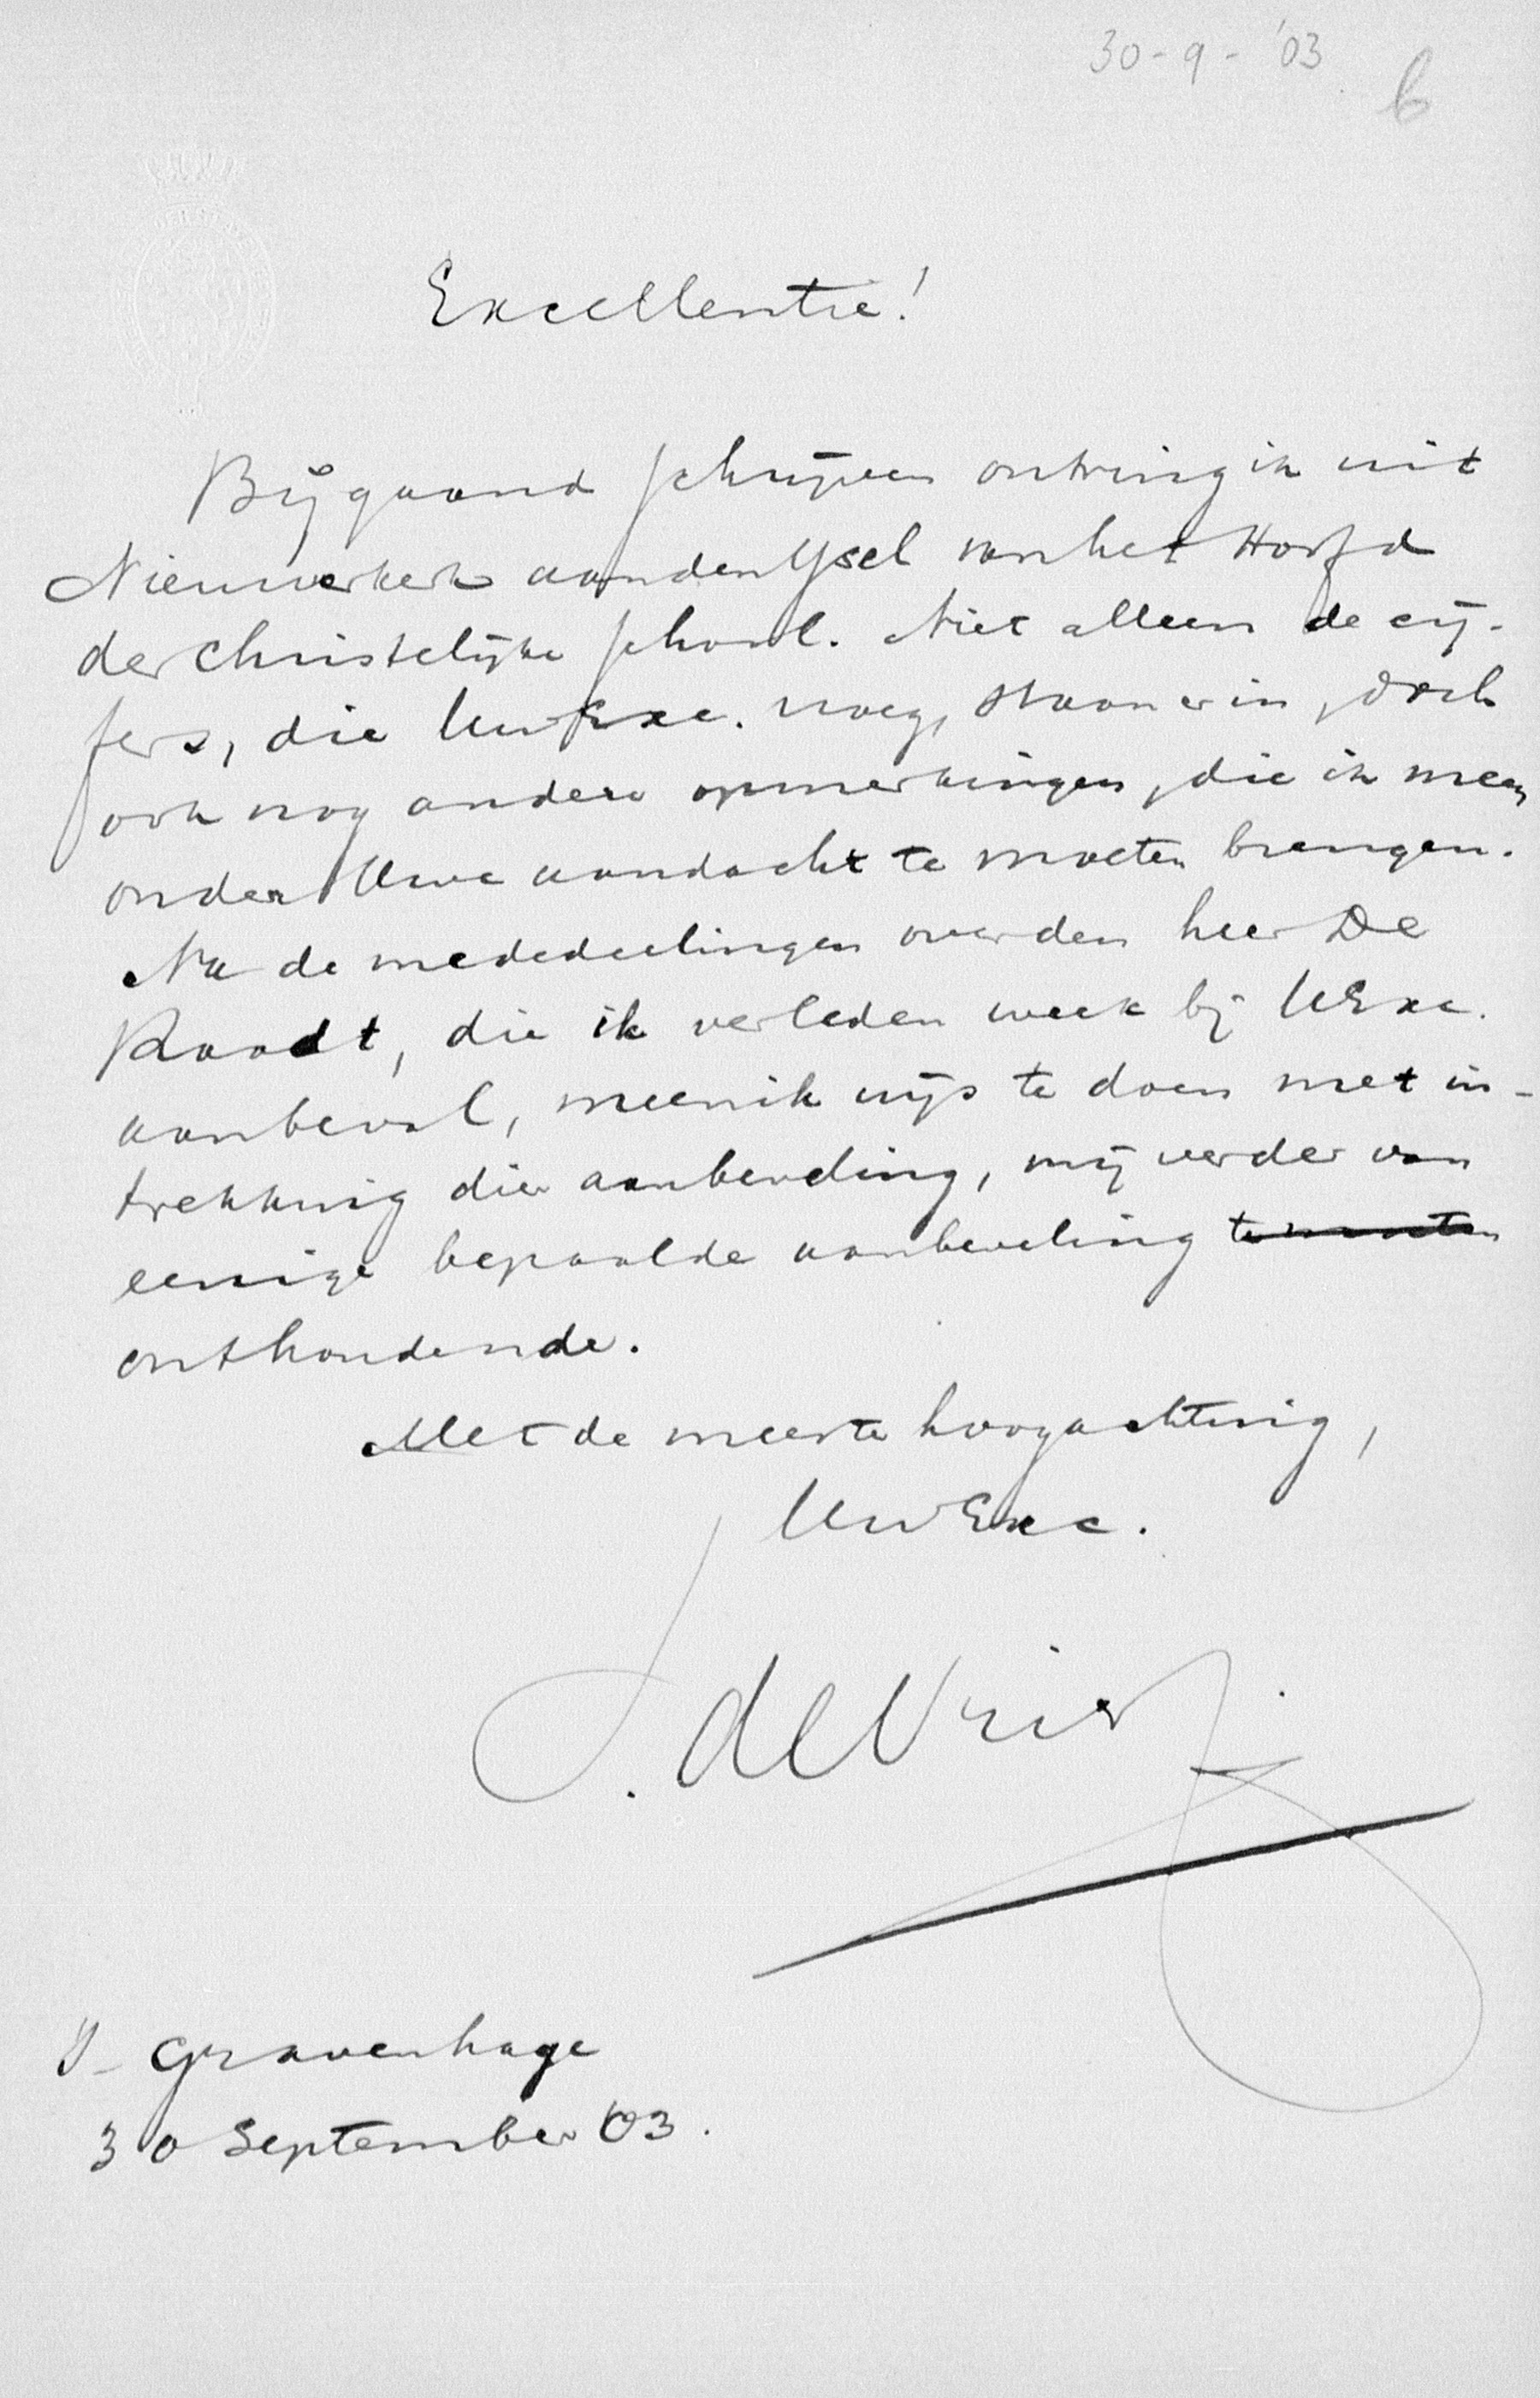 30-9-'03
b
Excellentie!
Bijgaand schrijven ontving ik uit
Nieuwerkerk aan den IJsel van het Hoofd
der Christelijke school. Niet alleen de cij-
fers, die Uw Exc. vroeg, staan er in, doch
ook nog andere opmerkingen, die ik meen
onder Uwe aandacht te moeten brengen.
Na de mededeelingen over den heer De
Raadt, die ik verleden week bij UExc.
aanbeval, meen ik wijs te doen met in-
trekking dier aanbeveling, mij verder van
eenige bepaalde aanbeveling te moeten
onthoudende.
Met de meeste hoogachting,
Uw Exc.
S. de Vries
's-Gravenhage
30 September '03.